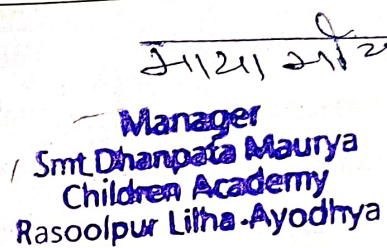 माया मौ
Manager
Smt. Dhanpata Maurya
Children Academy
Rasoolpur Lilha-Ayodhya